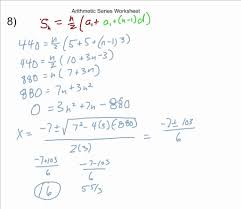 Arithmetic Series Worksheet
8) Sₙ = n/2 (a₁ + a₁ + (n-1)d)
440 = n/2 (5 + 5 + (n-1)3)
440 = n/2 (10 + 3n - 3)
880 = n (7 + 3n)
880 = 7n + 3n²
0 = 3n² + 7n - 880
x = (-7 ± √(7² - 4(3)(-880))) / 2(3) = (-7 ± 103) / 6
(-7+103)/6 (-7-103)/6
16 55/3